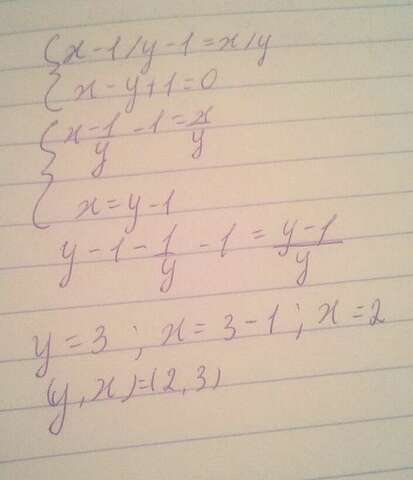 {x-1/y-1=x/y
{x-y+1=0
{x-1/y -1=x/y
x=y-1
y-1-1/y -1=y-1/y
y=3; x=3-1; x=2
(y,x)=(2,3)